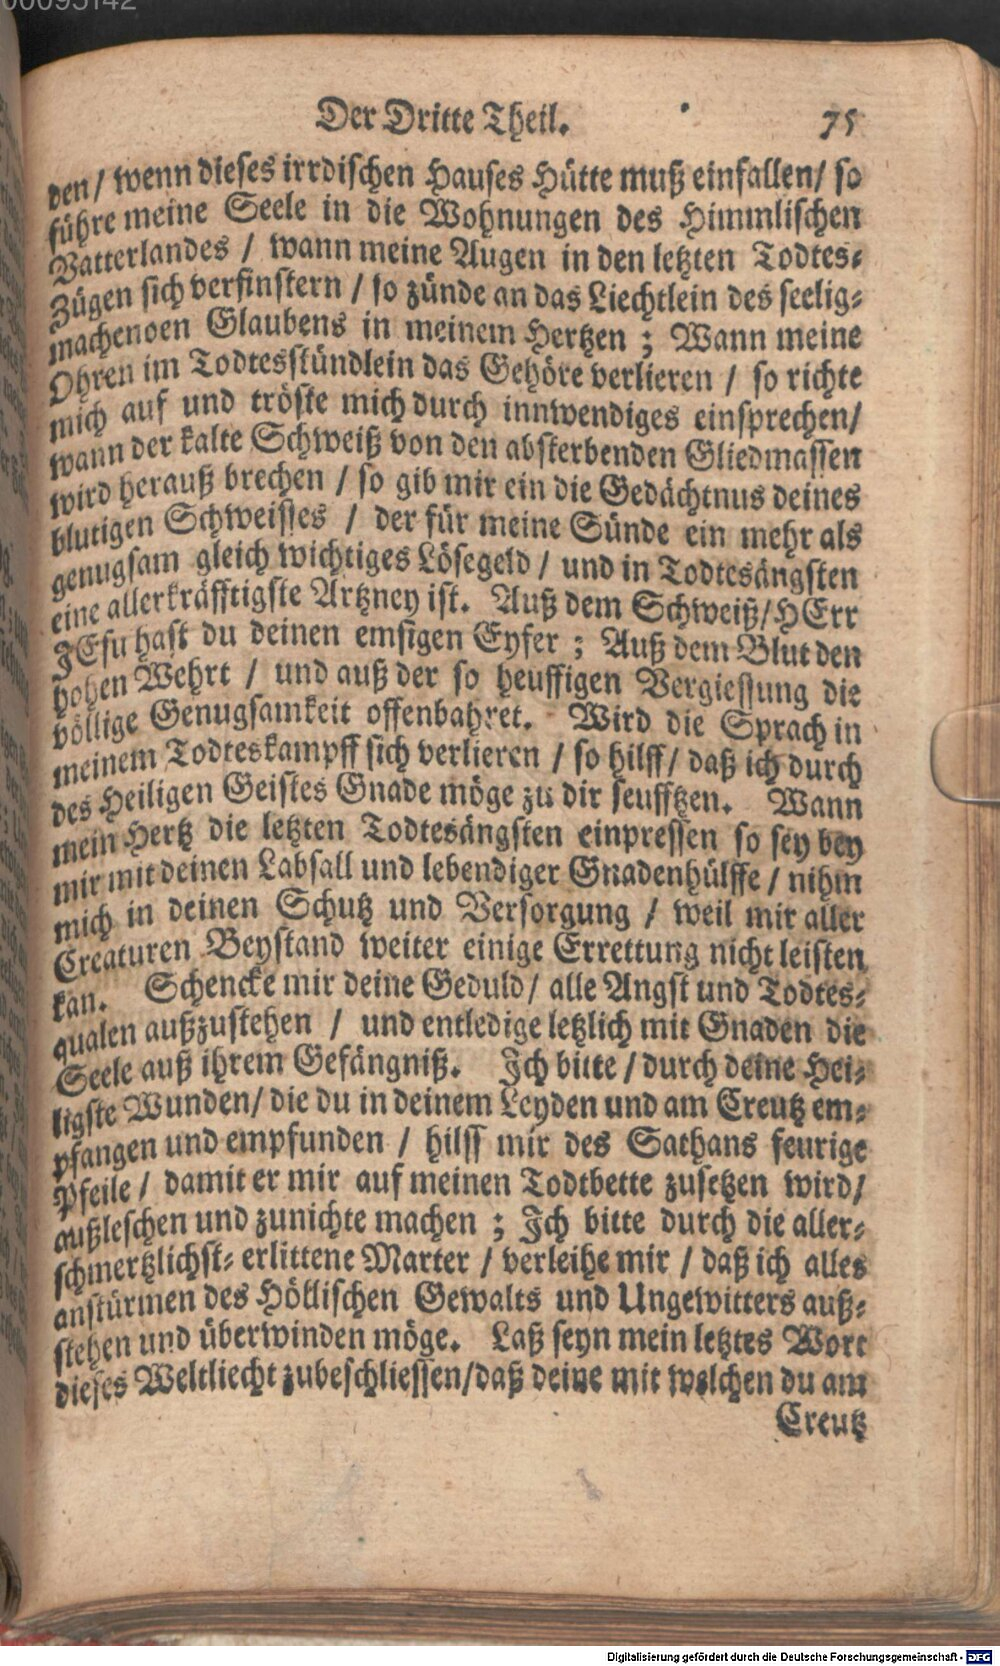 00095142
Der Dritte Theil. 75
den / wenn dieses irrdischen Hauses Hütte muß einfallen / so
führe meine Seele in die Wohnungen des Himmlischen
Vatterlandes / wann meine Augen in den letzten Todtes-
Zügen sich verfinstern / so zünde an das Liechtlein des seelig-
machenden Glaubens in meinem Hertzen ; Wann meine
Ohren im Todtesstündlein das Gehöre verlieren / so richte
mich auf und tröste mich durch innwendiges einsprechen /
wann der kalte Schweiß von den absterbenden Gliedmassen
wird herauß brechen / so gib mir ein die Gedächtnus deines
blutigen Schweisses / der für meine Sünde ein mehr als
genugsam gleich wichtiges Lösegeld / und in Todtesängsten
eine allerkräfftigste Artzney ist. Auß dem Schweiß / HErr
JEsu hast du deinen emsigen Eyfer ; Auß dem Blut den
hohen Wehrt / und auß der so heuffigen Vergiessung die
völlige Genugsamkeit offenbahret. Wird die Sprach in
meinem Todteskampff sich verlieren / so hilff / daß ich durch
des Heiligen Geistes Gnade möge zu dir seufftzen. Wann
mein Hertz die letzten Todtesängsten einpressen so sey bey
mir mit deinen Labsall und lebendiger Gnadenhülffe / nihm
mich in deinen Schutz und Versorgung / weil mir aller
Creaturen Beystand weiter einige Errettung nicht leisten
kan. Schencke mir deine Geduld / alle Angst und Todtes-
qualen außzustehen / und entledige letzlich mit Gnaden die
Seele auß ihrem Gefängniß. Ich bitte / durch deine Hei-
ligste Wunden / die du in deinem Leyden und am Creutz em-
pfangen und empfunden / hilff mir des Sathans feurige
Pfeile / damit er mir auf meinen Todtbette zusetzen wird /
außleschen und zunichte machen ; Ich bitte durch die aller-
schmertzlichst- erlittene Marter / verleihe mir / daß ich alles
anstürmen des Höllischen Gewalts und Ungewitters auß-
stehen und überwinden möge. Laß seyn mein letztes Wort
dieses Weltliecht zubeschliessen / daß deine mit welchen du am
Creutz
Digitalisierung gefördert durch die Deutsche Forschungsgemeinschaft - DFG